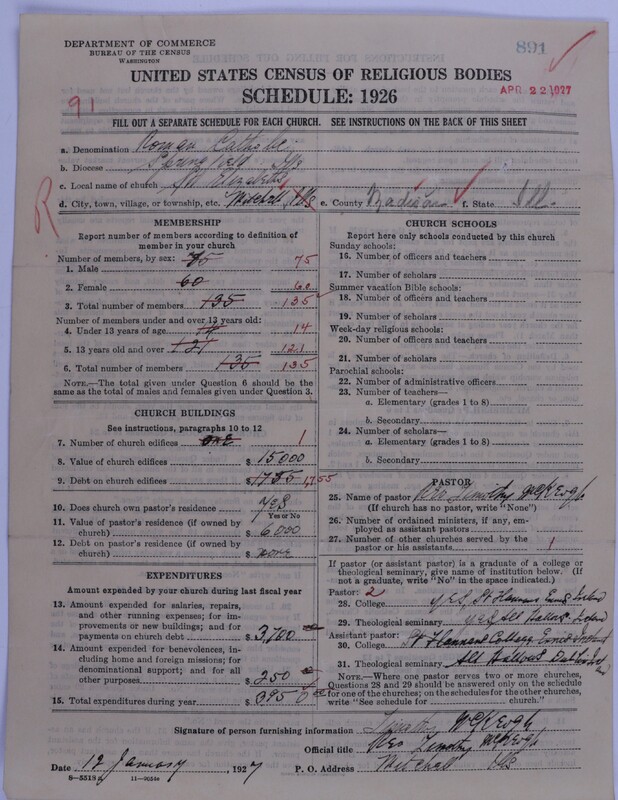 DEPARTMENT OF COMMERCE
BUREAU OF THE CENSUS
WASHINGTON
891
UNITED STATES CENSUS OF RELIGIOUS BODIES
SCHEDULE: 1926
APR 22 1927
91
FILL OUT A SEPARATE SCHEDULE FOR EACH CHURCH. SEE INSTRUCTIONS ON THE BACK OF THIS SHEET
a. Denomination Roman Catholic
b. Diocese Springfield Ills
c. Local name of church St Elizabeths
d. City, town, village, or township, etc. Mitchell, Ills e. County Madison f. State Ill.
R
MEMBERSHIP
Report number of members according to definition of member in your church
Number of members, by sex:
1. Male 75 75
2. Female 60 60
3. Total number of members 135 135
Number of members under and over 13 years old:
4. Under 13 years of age 14 14
5. 13 years old and over 121 121
6. Total number of members 135 135
NOTE.—The total given under Question 6 should be the same as the total of males and females given under Question 3.
CHURCH BUILDINGS
See instructions, paragraphs 10 to 12
7. Number of church edifices one 1
8. Value of church edifices $ 15000
9. Debt on church edifices $ 1755 1,755
10. Does church own pastor's residence? yes
Yes or No
11. Value of pastor's residence (if owned by church) $ 6000
12. Debt on pastor's residence (if owned by church) $ none
EXPENDITURES
Amount expended by your church during last fiscal year
13. Amount expended for salaries, repairs, and other running expenses; for improvements or new buildings; and for payments on church debt $ 3,700
14. Amount expended for benevolences, including home and foreign missions; for denominational support; and for all other purposes $ 250
15. Total expenditures during year $ 3950
CHURCH SCHOOLS
Report here only schools conducted by this church
Sunday schools:
16. Number of officers and teachers
17. Number of scholars
Summer vacation Bible schools:
18. Number of officers and teachers
19. Number of scholars
Week-day religious schools:
20. Number of officers and teachers
21. Number of scholars
Parochial schools:
22. Number of administrative officers
23. Number of teachers—
a. Elementary (grades 1 to 8)
b. Secondary
24. Number of scholars—
a. Elementary (grades 1 to 8)
b. Secondary
PASTOR
25. Name of pastor Rev Timothy McKeogh
(If church has no pastor, write "None")
26. Number of ordained ministers, if any, employed as assistant pastors
27. Number of other churches served by the pastor or his assistants 1
If pastor (or assistant pastor) is a graduate of a college or theological seminary, give name of institution below. (If not a graduate, write "No" in the space indicated.)
Pastor: 2
28. College yes, St Flannans Ennis Ireland
29. Theological seminary yes All Hallows Ireland
Assistant pastor:
30. College St Flannans College Ennis Ireland
31. Theological seminary All Hallows Dublin
NOTE.—Where one pastor serves two or more churches, Questions 28 and 29 should be answered only on the schedule for one of the churches; on the schedules for the other churches, write "See schedule for church."
Signature of person furnishing information Timothy McKeogh
Official title Rev Timothy McKeogh
Date 12 January, 1927 P. O. Address Mitchell Ills
8—5518a 11—9054a